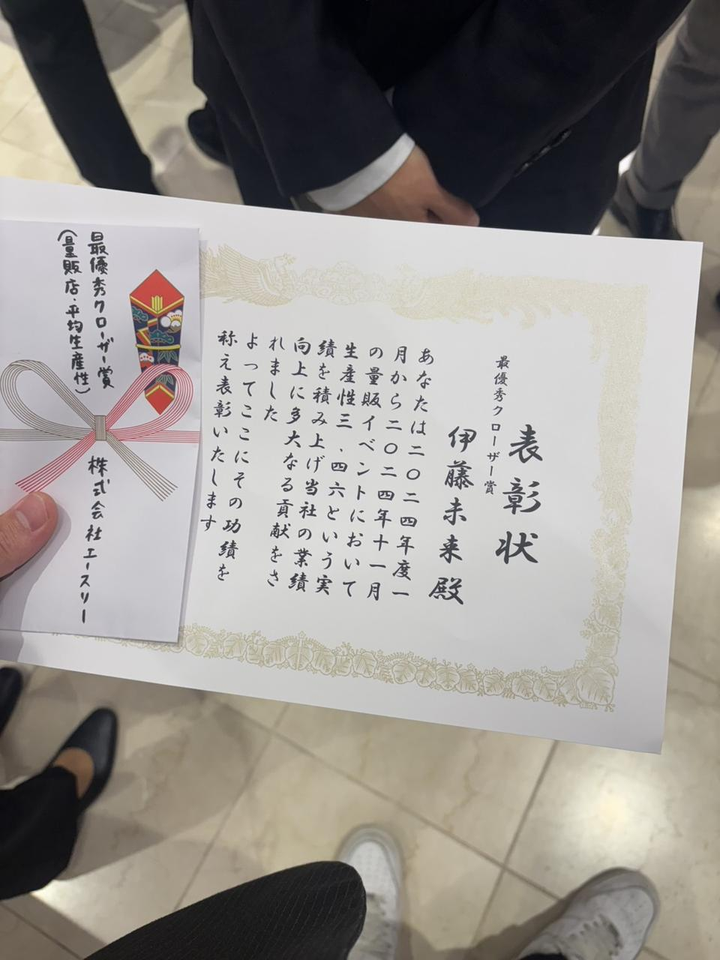 表彰状
最優秀クローザー賞
伊藤未来殿
あなたは二〇二四年度一
月から二〇二四年十一月
の量販イベントにおいて
生産性三.四六という実
績を積み上げ当社の業績
向上に多大なる貢献をさ
れました
よってここにその功績を
称え表彰いたします
最優秀クローザー賞
(量販店・平均生産性)
株式会社エースリー